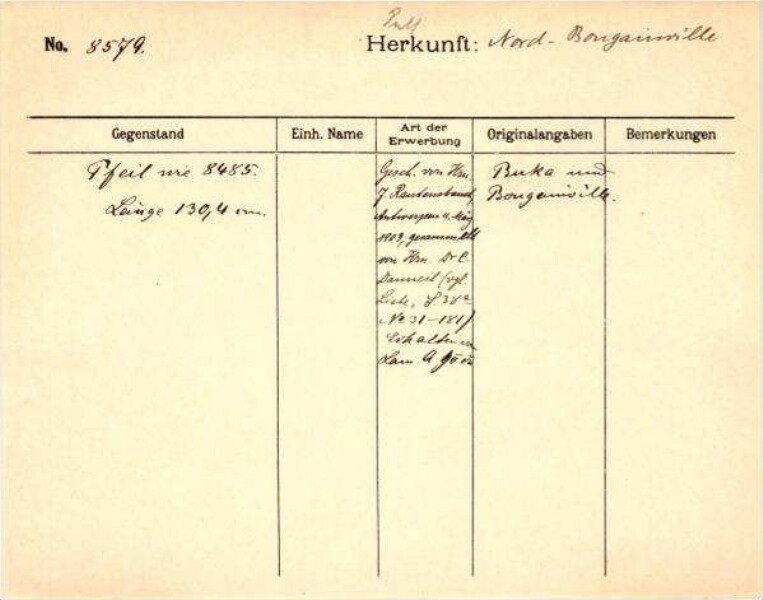 No. 8579.
Herkunft: Nord-Bougainville
Gegenstand
Einh. Name
Art der Erwerbung
Originalangaben
Bemerkungen
Pfeil wie 8485.
Länge 130,4 cm.
Gesch. von Hrn.
J. Rautenstrauch,
Antwerpen 4. März
1903, gesammelt
von Hrn. Dr C.
Danneil (vgl.
Liste, S. 38a
No 31-181)
Erhalten
Buka und
Bougainville.